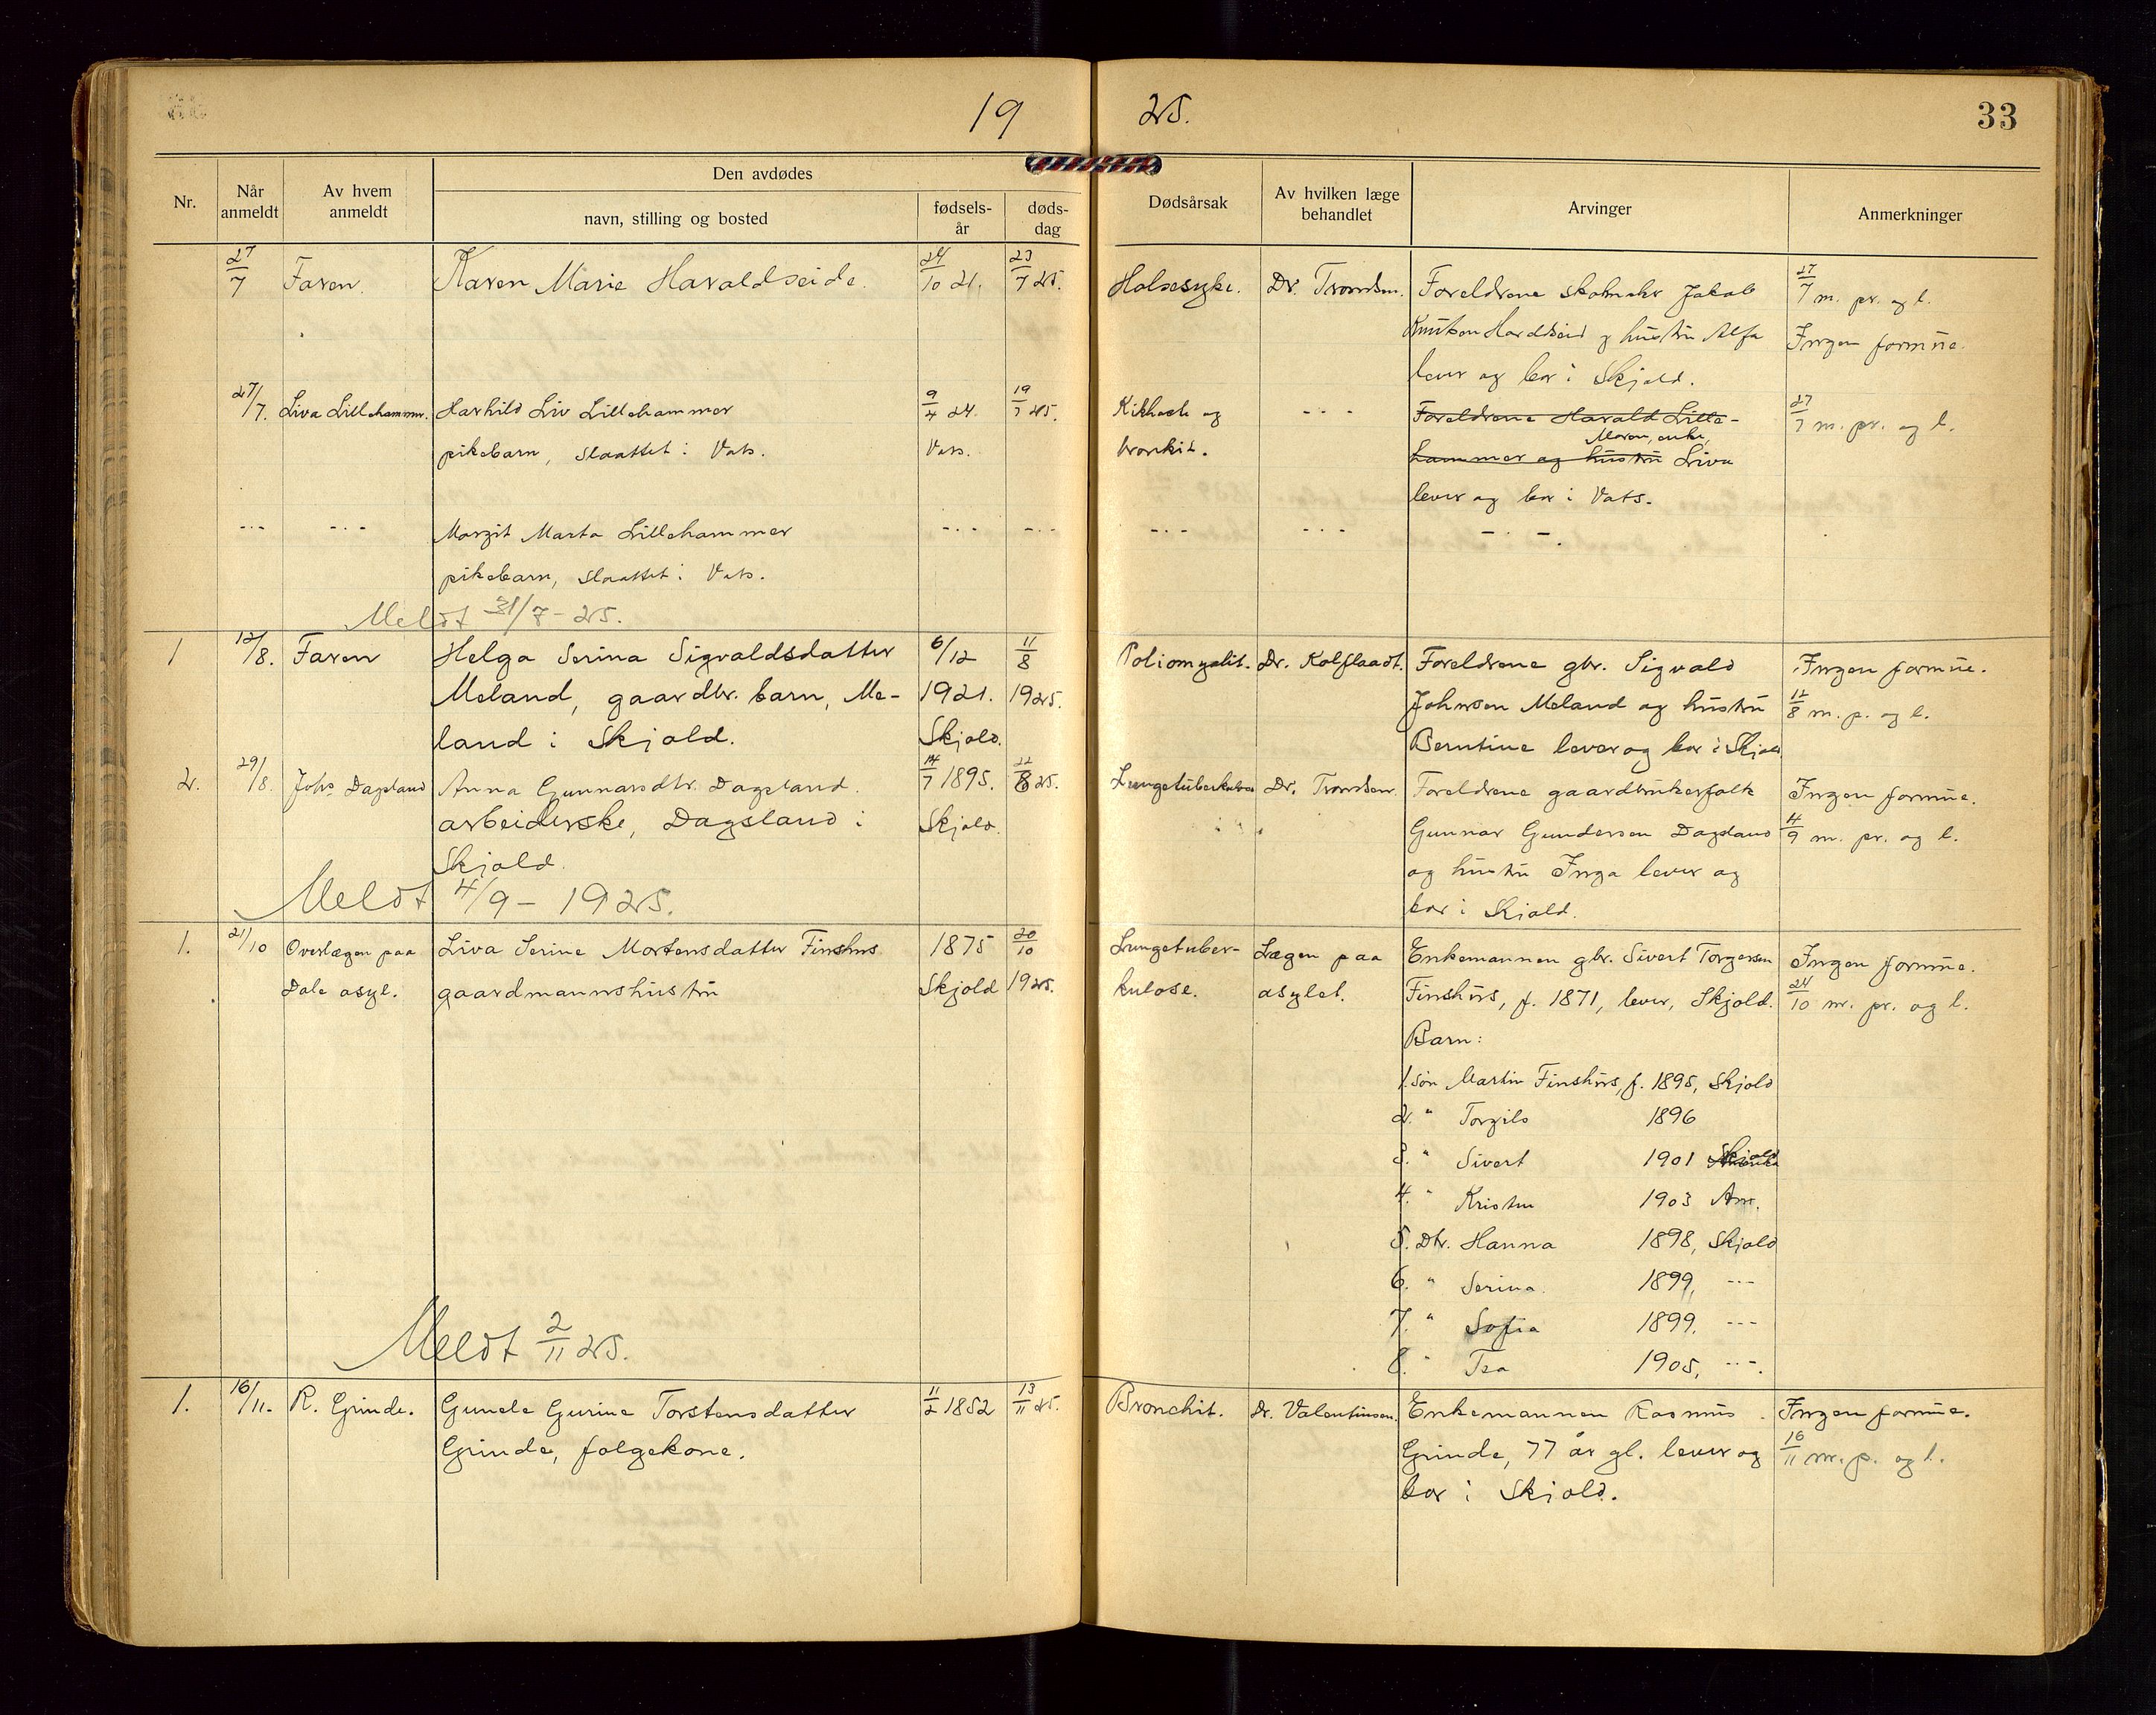 19 25.
33
Nr.
Når anmeldt
Av hvem anmeldt
Den avdødes
navn, stilling og bosted
fødselsår
dødsdag
Dødsårsak
Av hvilken læge behandlet
Arvinger
Anmerkninger
27/7 Faren. Karen Marie Haraldseide. 24/10 21. 23/7 25. Halsesyke. Dr. Tromdsen. Foreldrene skolemaker Jakob 27/7 m. pr. og l.
Knutsen Haraldseid og hustru Alfa Ingen formue.
lever og bor i Skjold.
27/7. Liva Lillehammer. Harhild Liv Lillehammer 9/4 24. 19/7 25. Kikhoste og -..- Foreldrene Harald Lille- 27/7 m. pr. og l.
Moren, enke,
pikebarn, Slaattet i Vats. Vats. bronkit. hammer og hustru Liva
lever og bor i Vats.
-..- -..- Margit Marta Lillehammer -..- -..- -..- -..- -..-
pikebarn, Slaattet i Vats.
Meldt 31/7-25.
1 12/8. Faren Helga Serina Sigvaldsdatter 6/12 11/8 Poliomyalit. Dr. Kolflaadt. Foreldrene gbr. Sigvald Ingen formue.
Meland, gaardbr. barn, Me- 1921. 1925. Johnsen Meland og hustru 12/8 m. p. og l.
land i Skjold. Skjold. Berntine lever og bor i Skjold
2. 29/8. Johs Dagsland Anna Gunnarsdtr. Dagsland. 14/7 1895. 22/8 25. Lungetuberkulose Dr. Tromdsen. Foreldrene gaardbrukerfolk Ingen formue.
arbeiderske, Dagsland i Skjold. Gunnar Gundersen Dagsland 4/9 m. pr. og l.
Skjold. og hustru Inga lever og
Meldt 4/9-1925. bor i Skjold.
1. 21/10 Overlægen paa Liva Serine Mortensdatter Finshus 1875 20/10 Lungetuber- Lægen paa Enkemannen gbr. Sivert Torgersen Ingen formue.
Dale asyl. gaardmannshustru Skjold 1925. kulose. asylet. Finshus, f. 1871, lever, Skjold. 24/10 m. pr. og l.
Barn:
1. Søn Martin Finshus, f. 1895, Skjold
2. " Torgils 1896
3. " Sivert 1901 Skjold
4. " Kristen 1903 Am.
5. Dtr. Hanna 1898, Skjold
6. " Serina. 1899, -..-
7. " Sofia 1899. -..-
8. " Tea 1905, -..-.
Meldt 2/11 25.
1. 16/11. R. Grinde. Gunele Gurine Torstensdatter 11/2 1852 13/11 25. Bronchit. Dr. Valentinsen. Enkemannen Rasmus Ingen formue.
Grinde, folgekone. Grinde, 77 år gl. lever og 16/11 m. p. og l.
bor i Skjold.